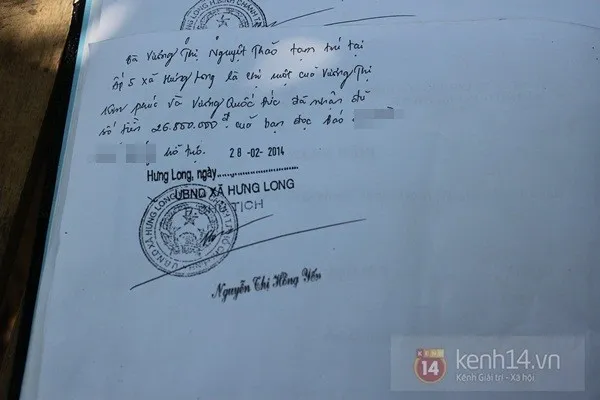 Bà Vương Thị Nguyệt Thảo tạm trú tại
ấp 5 xã Hưng Long là chị ruột của Vương Thị
Kim Phúc và Vương Quốc Đức đã nhận đủ
số tiền 26.800.000đ của bạn đọc Báo
hỗ trợ.
28-02-2014
Hưng Long, ngày
UBND XÃ HƯNG LONG
TỊCH
Nguyễn Thị Hồng Yến
kenh14.vn
Kênh Giải trí - Xã hội
14